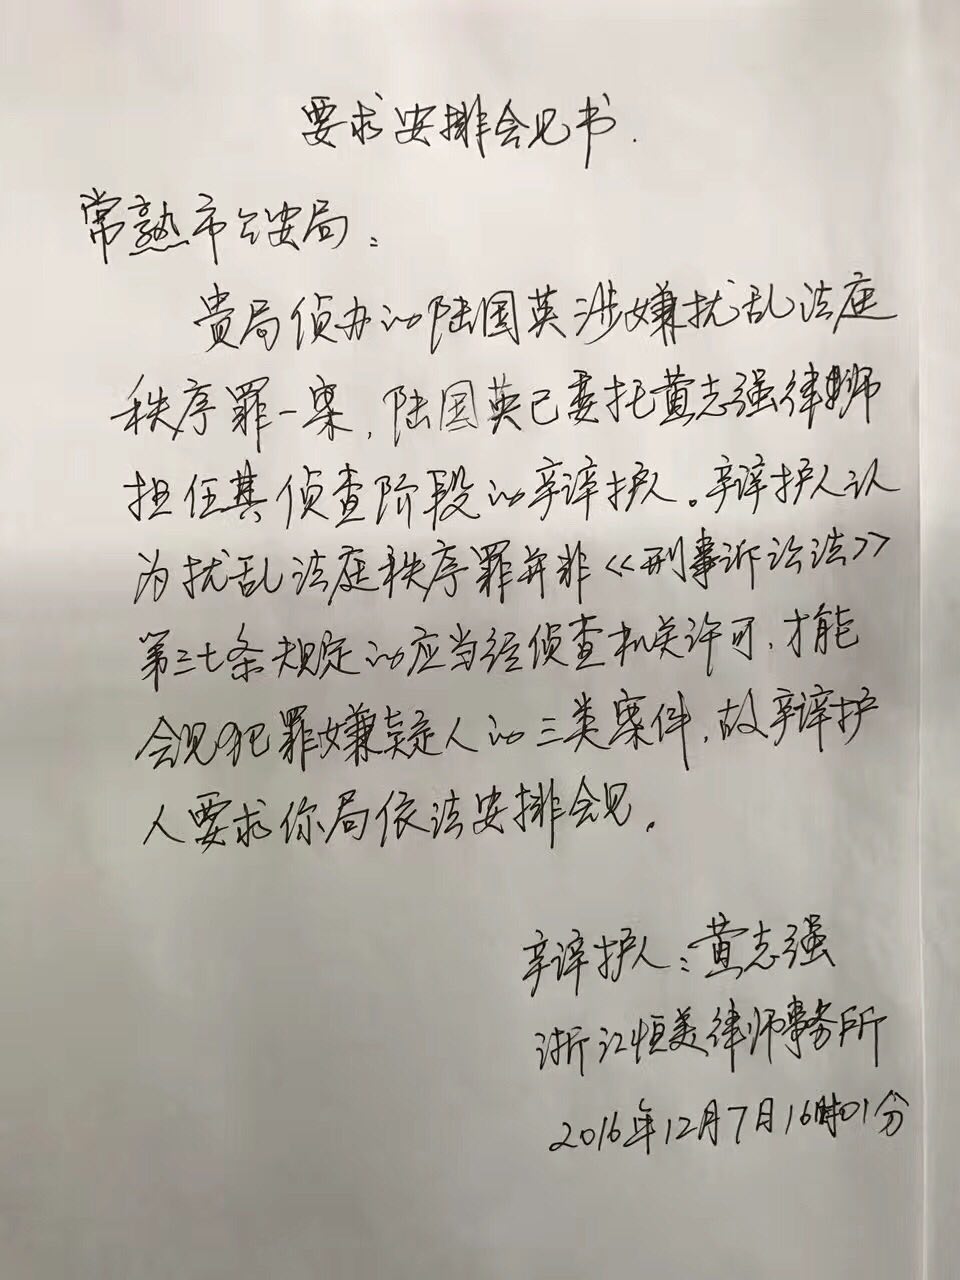 要求安排会见书.
常熟市公安局：
贵局侦办的陆国英涉嫌扰乱法庭
秩序罪一案，陆国英已委托黄志强律师
担任其侦查阶段的辩护人。辩护人认
为扰乱法庭秩序罪并非《刑事诉讼法》
第三七条规定的应当经侦查机关许可，才能
会见犯罪嫌疑人的三类案件，故辩护
人要求你局依法安排会见。
辩护人：黄志强
浙江恒美律师事务所
2016年12月7日16时01分